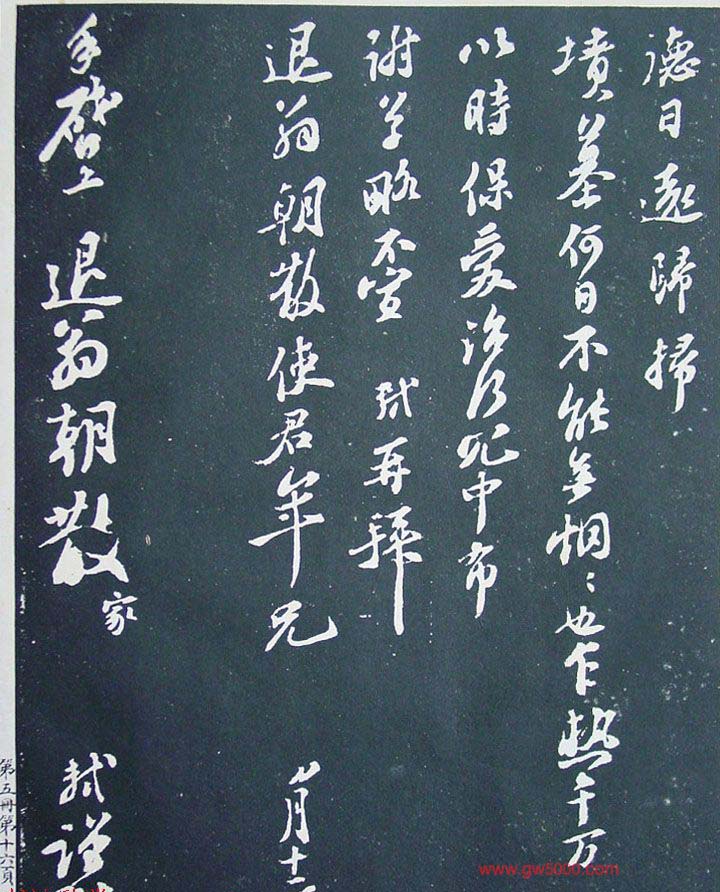 德日遠歸掃
墳墓何日不能無惘〻也乍熱千万
以時保愛治行冗中布
謝草略不宣 軾再拜
退翁朝散使君年兄 月十
手啓上 退翁朝散家 軾謹
第五冊第十六頁
www.gw5000.com